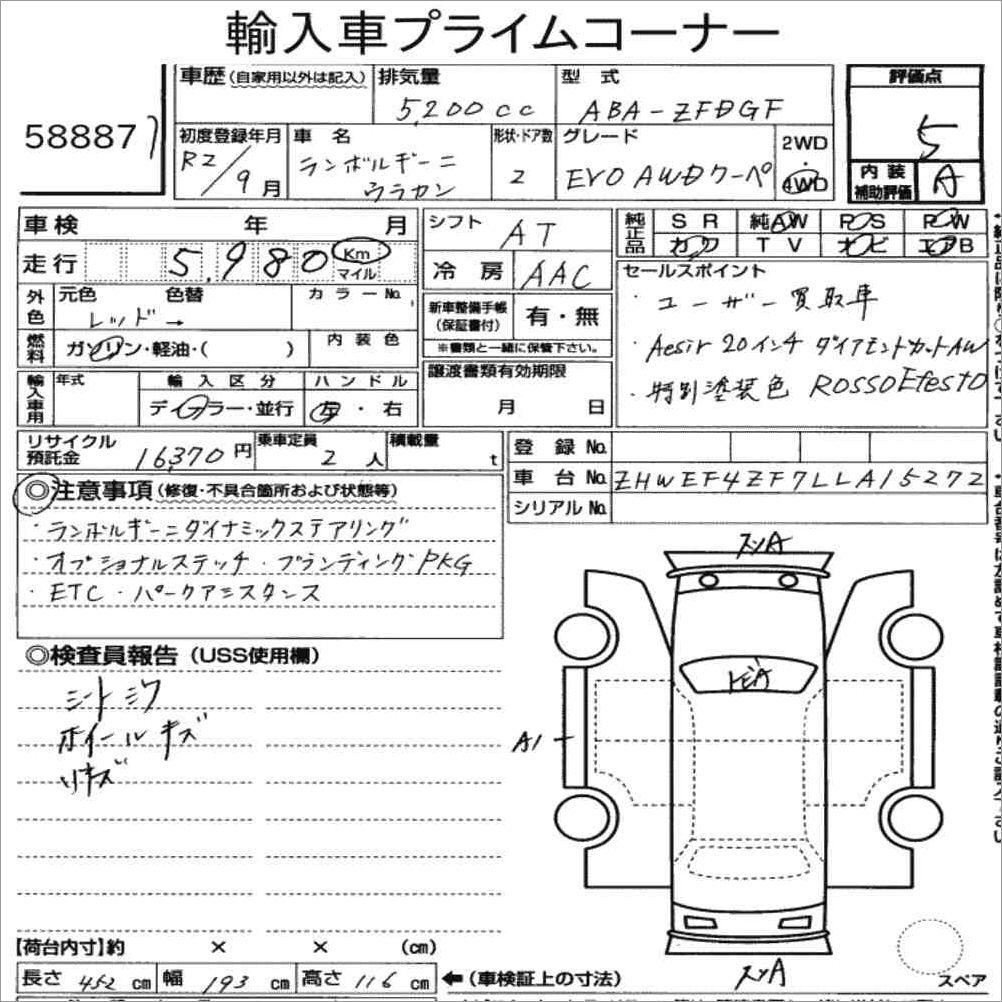 輸入車プライムコーナー
58887
車歴（自家用以外は記入）
排気量
5,200cc
型 式
ABA-ZFDGF
評価点
5
初度登録年月
R2/9月
車 名
ランボルギーニ
ウラカン
形状・ドア数
2
グレード
EVO AWDクーペ
2WD
・
4WD
内 装
補助評価
A
車検 年 月
走行 5,980 Km
マイル
シフト AT
冷 房 AAC
純正品
SR 純AW PS PW
カワ TV ナビ エアB
セールスポイント
・ユーザー買取車
・Aesir 20インチ ダイアモンドカットAW
・特別塗装色 ROSSO Efesto
外色
元色 色替
レッド →
カラーNo.
新車整備手帳
（保証書付）
有・無
※書類と一緒に保管下さい。
燃料
ガソリン・軽油・( )
内 装 色
輸入車用
年式
輸 入 区 分
ディーラー・並行
ハ ン ド ル
左 ・ 右
譲渡書類有効期限
月 日
リサイクル
預託金
16,370円
乗車定員
2人
積載量
t
登 録 No.
車 台 No. ZHWEF4ZF7LLA15272
シリアル No.
◎注意事項（修復・不具合箇所および状態等）
・ランボルギーニダイナミックステアリング
・オプショナルステッチ・ブランディングPKG
・ETC・パークアシスタンス
◎検査員報告（USS使用欄）
シートシワ
ホイールキズ
リキズ
A1
【荷台内寸】約 × × （cm）
長さ 452 cm 幅 193 cm 高さ 116 cm
←（車検証上の寸法）
スペア